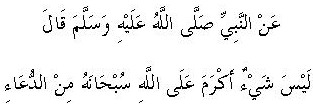 عَنْ النَّبِيِّ صَلَّى اللَّهُ عَلَيْهِ وَسَلَّمَ قَالَ
لَيْسَ شَيْءٌ أَكْرَمَ عَلَى اللَّهِ سُبْحَانَهُ مِنْ الدُّعَاءِ